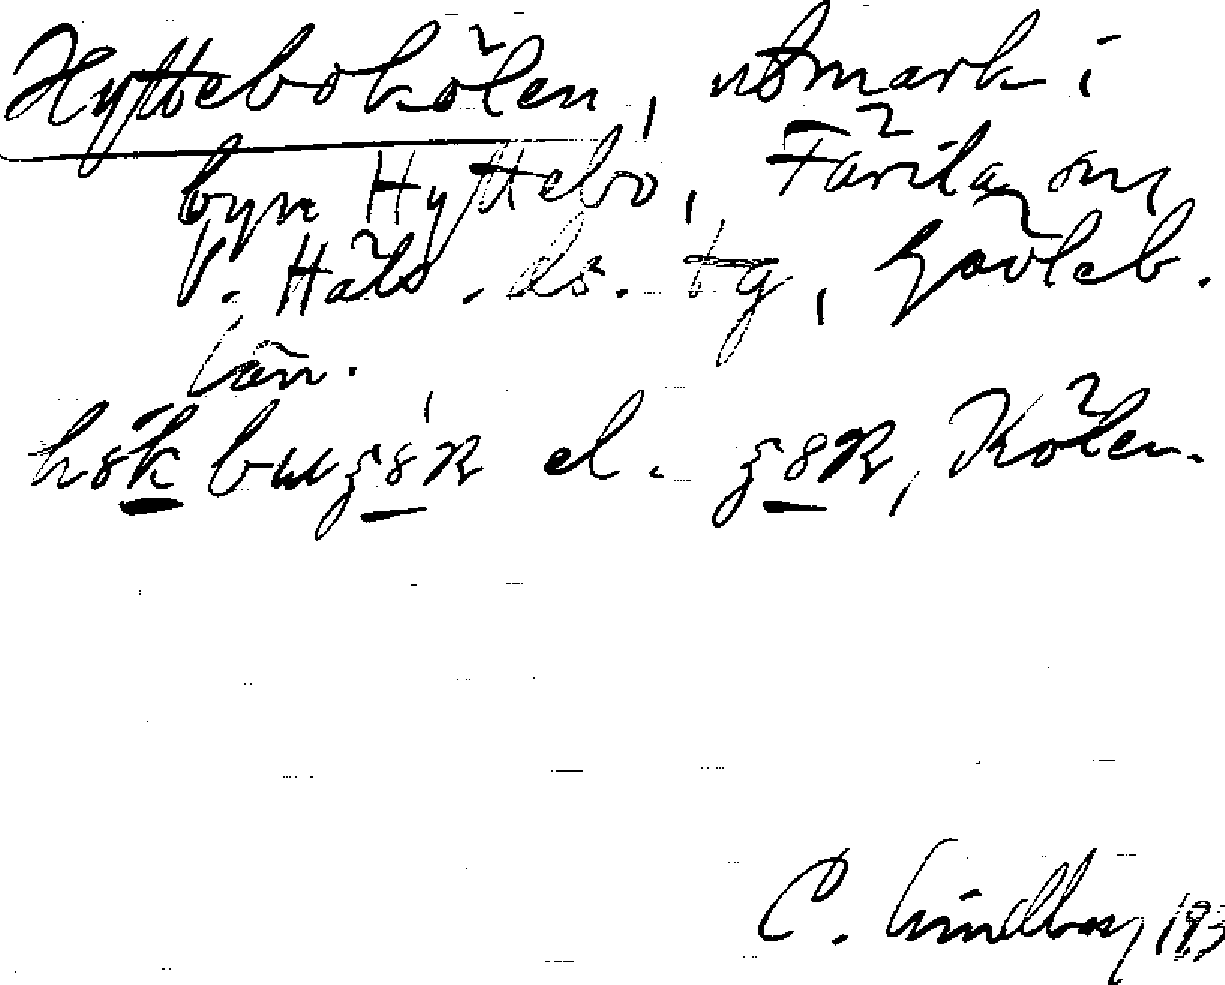 Hyttebokölen, utmark i
byn Hyttebo, Färila sn,
V. Häls.-ds. tg, Gävleb.
län.
el. Kölen.
C. Lindberg 193